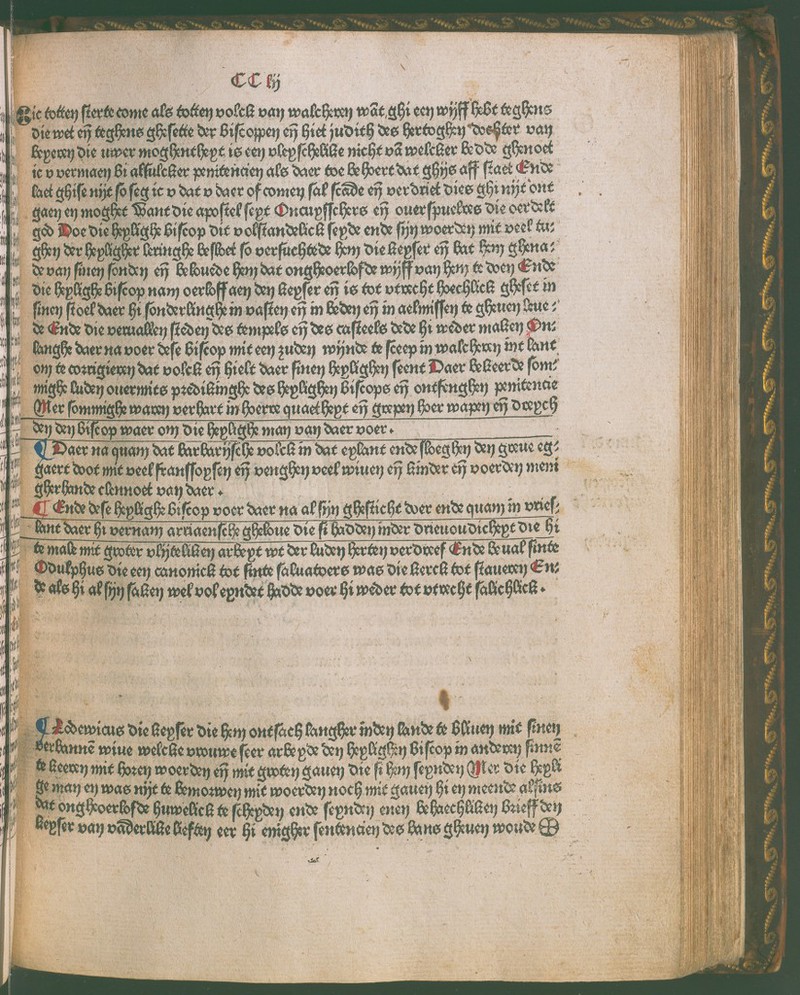 CC lij
Sic totten sterte come als totten volck van walcheren wāt ghi een wijff hebt teghens
die wet eñ teghens ghesette der biscoppen eñ hiet judith des hertoghen dochter van
beyeren die uwer moghentheyt is een vleyschelike nicht vā welcker bedde ghenoet
ic v vermaen bi alsulcker penitencien als daer toe behoert dat ghijs aff staet Ende
laet ghise nijt so seg ic v dat v daer of comen sal scāde eñ verdriet dies ghi nijt ont
gaen en moghet Want die apostel seyt Oncuysschers eñ ouerspuelres die oerdelt
god Doe die heylighe biscop dit volstandelick seyde ende sijn woerden mit veel tu⸗
ghen der heyligher leringhe besloet so versuchtede hem die keyser eñ bat hem ghena⸗
de van sinen sonden eñ belouede hem dat ongheoerlofde wijff van hem te doen Ende
die heylighe biscop nam oerloff aen den keyser eñ is tot vtrecht hoechlick gheset in
sinen stoel daer hi sonderlinghe in vasten eñ in beden eñ in aelmissen te gheuen leue⸗
de Ende die veruallen steden des tempels eñ des casteels dede hi weder maken On⸗
langhe daer na voer dese biscop mit een zuden wijnde te sceep in walcheren int lant
om te corrigieren dat volck eñ hielt daer sinen heylighen seent Daer bekeerde som⸗
mighe luden ouermits predikinghe des heylighen biscops eñ ontfenghen penitencie
Mer sommighe waren verhart in hoerre quaetheyt eñ grepen hoer wapen eñ dreych
den den biscop waer om die heylighe man van daer voer.
¶ Daer na quam dat barbarijsche volck in dat eylant ende sloeghen den greue eg⸗
gaert doot mit veel franssoysen eñ venghen veel wiuen eñ kinder eñ voerden meni
gherhande clennoet van daer.
¶ Ende dese heylighe biscop voer daer na al sijn ghesticht doer ende quam in vries⸗
lant daer hi vernam arriaensche gheloue die si hadden inder drieuoudicheyt die hi
te male mit groter vlijteliken arbeyt wt der luden herten verdreef Ende beual sinte
Odulphus die een canonick tot sinte saluatoers was die kerck tot staueren En⸗
de als hi al sijn saken wel voleyndet hadde voer hi weder tot vtrecht salichlick.
¶ Lodewicus die keyser die hem ontsach langher inden lande te bliuen mit sinen
verbannē wiue welcke vrouwe seer arbeyde den heylighen biscop in anderen sinnē
te keeren mit horen woerden eñ mit groten gauen die si hem seynden Mer die heyli
ge man en was nijt te bemorwen mit woerden noch mit gauen hi en meende alsins
dat ongheoerlofde huwelick te scheyden ende seynden enen behaechliken brieff den
keyser van vāderlike lieften eer hi enigher sentencien des bans gheuen woude